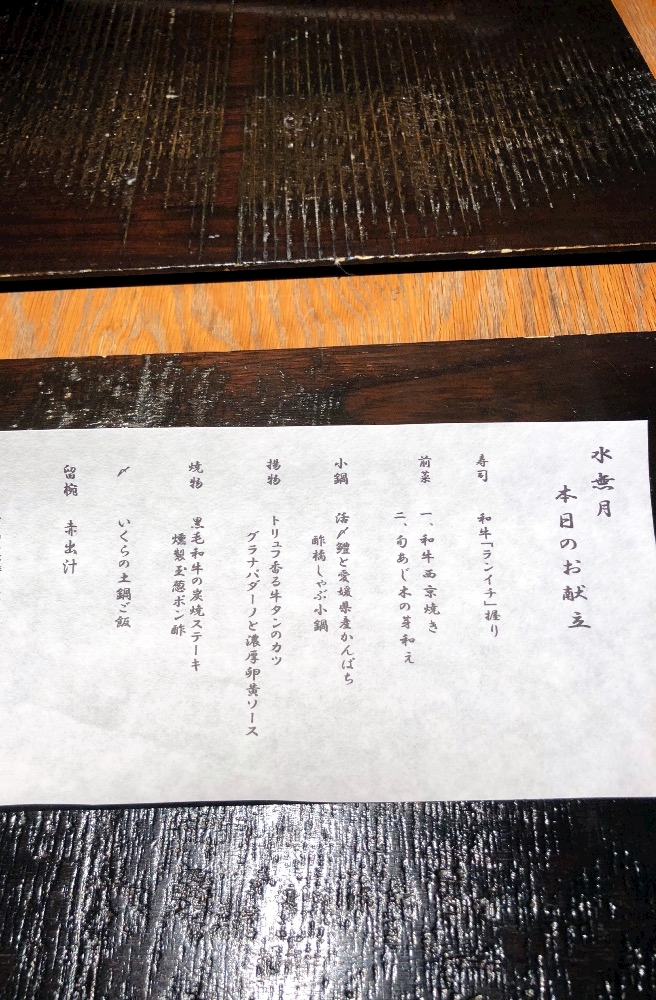 水無月
本日のお献立
寿司 和牛「ランイチ」握り
前菜 一、和牛西京焼き
二、旬あじ木の芽和え
小鍋 活〆鱧と愛媛県産かんぱち
酢橘しゃぶ小鍋
揚物 トリュフ香る牛タンのカツ
グラナパダーノと濃厚卵黄ソース
焼物 黒毛和牛の炭焼ステーキ
燻製玉葱ポン酢
〆 いくらの土鍋ご飯
留椀 赤出汁